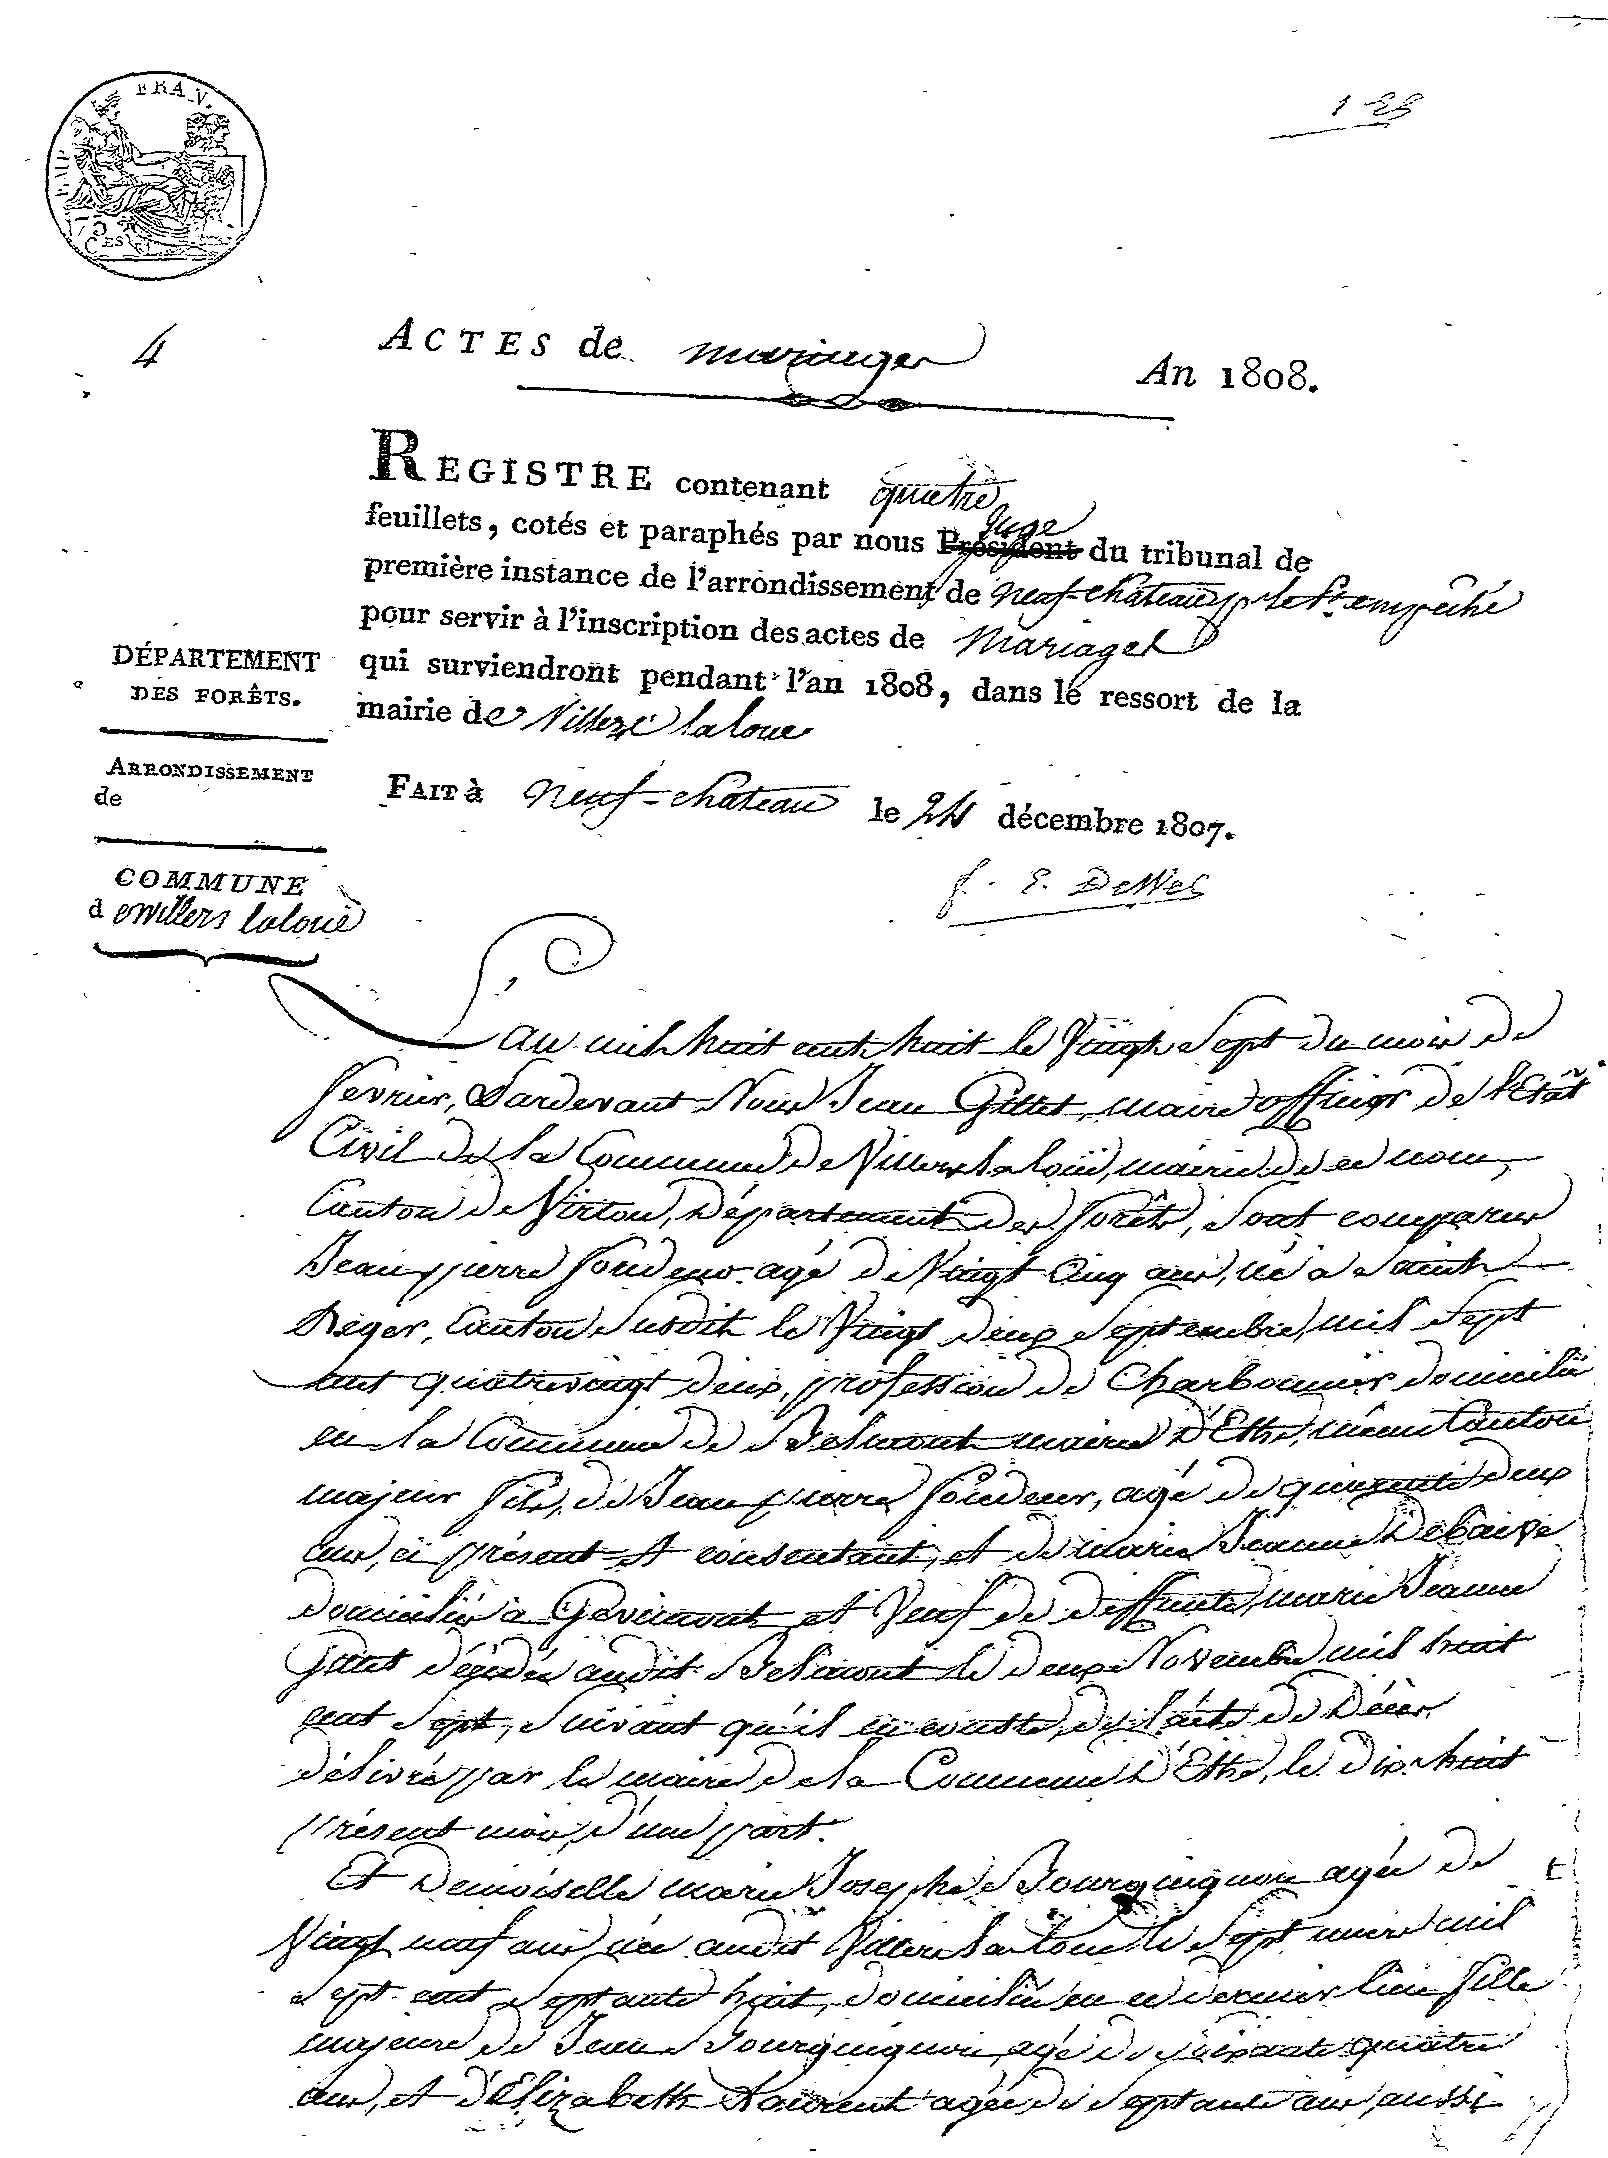 EMP. FRAN.
75
Ces
1 25
4
ACTES de mariages
An 1808.
REGISTRE contenant quatre
feuillets, cotés et paraphés par nous Président Juge du tribunal de
première instance de l'arrondissement de neuf-château pr le Pt empêché
pour servir à l'inscription des actes de Mariages
qui surviendront pendant l'an 1808, dans le ressort de la
mairie de Villers laloue
DÉPARTEMENT
DES FORÊTS.
ARRONDISSEMENT
de
COMMUNE
d e Willers laloue
FAIT à neuf-château le 24 décembre 1807.
L'an mil huit cent huit le Vingt Sept du mois de
fevrier, Pardevant Nous Jean Gillet, maire officier de l'Etât
Civil de la Commune de Villers la loüe, mairie de ce nom,
Canton de Virton, Département des forêts, Sont comparus
Jean pierre fondeur agé de Vingt Cinq ans, né a Saint
Léger, Canton Susdit le Vingt deux Septembre, mil Sept
cent quatrevingt deux, profession de Charbonnier domicilié
en la Commune de Belmont mairie D'Ethe, même Canton
majeur fils, de Jean pierre fondeur, agé de quarente deux
ans, ci présent et consentant, et de marie Jeanne
domicilié à Gévimont et Veuf de deffunte, marie Jeanne
décédée audit Belmont le deux Novembre mil huit
cent Sept, Suivant qu'il en conste, de l'acte de Décès
délivré par le maire de la Commune D'Ethe, le dix huit
présent mois, d'une part.
Et Demoiselle marie Josephe Bourguignon agée de
Vingt neuf ans née audit Villers la loue le Sept mars mil
Sept cent Septante huit, domiciliée en ce dernier lieu, fille
majeure de Jean Bourguignon, agé de Soixante quatre
ans, et d'Elizabeth Laurent agée de Septante ans, aussi